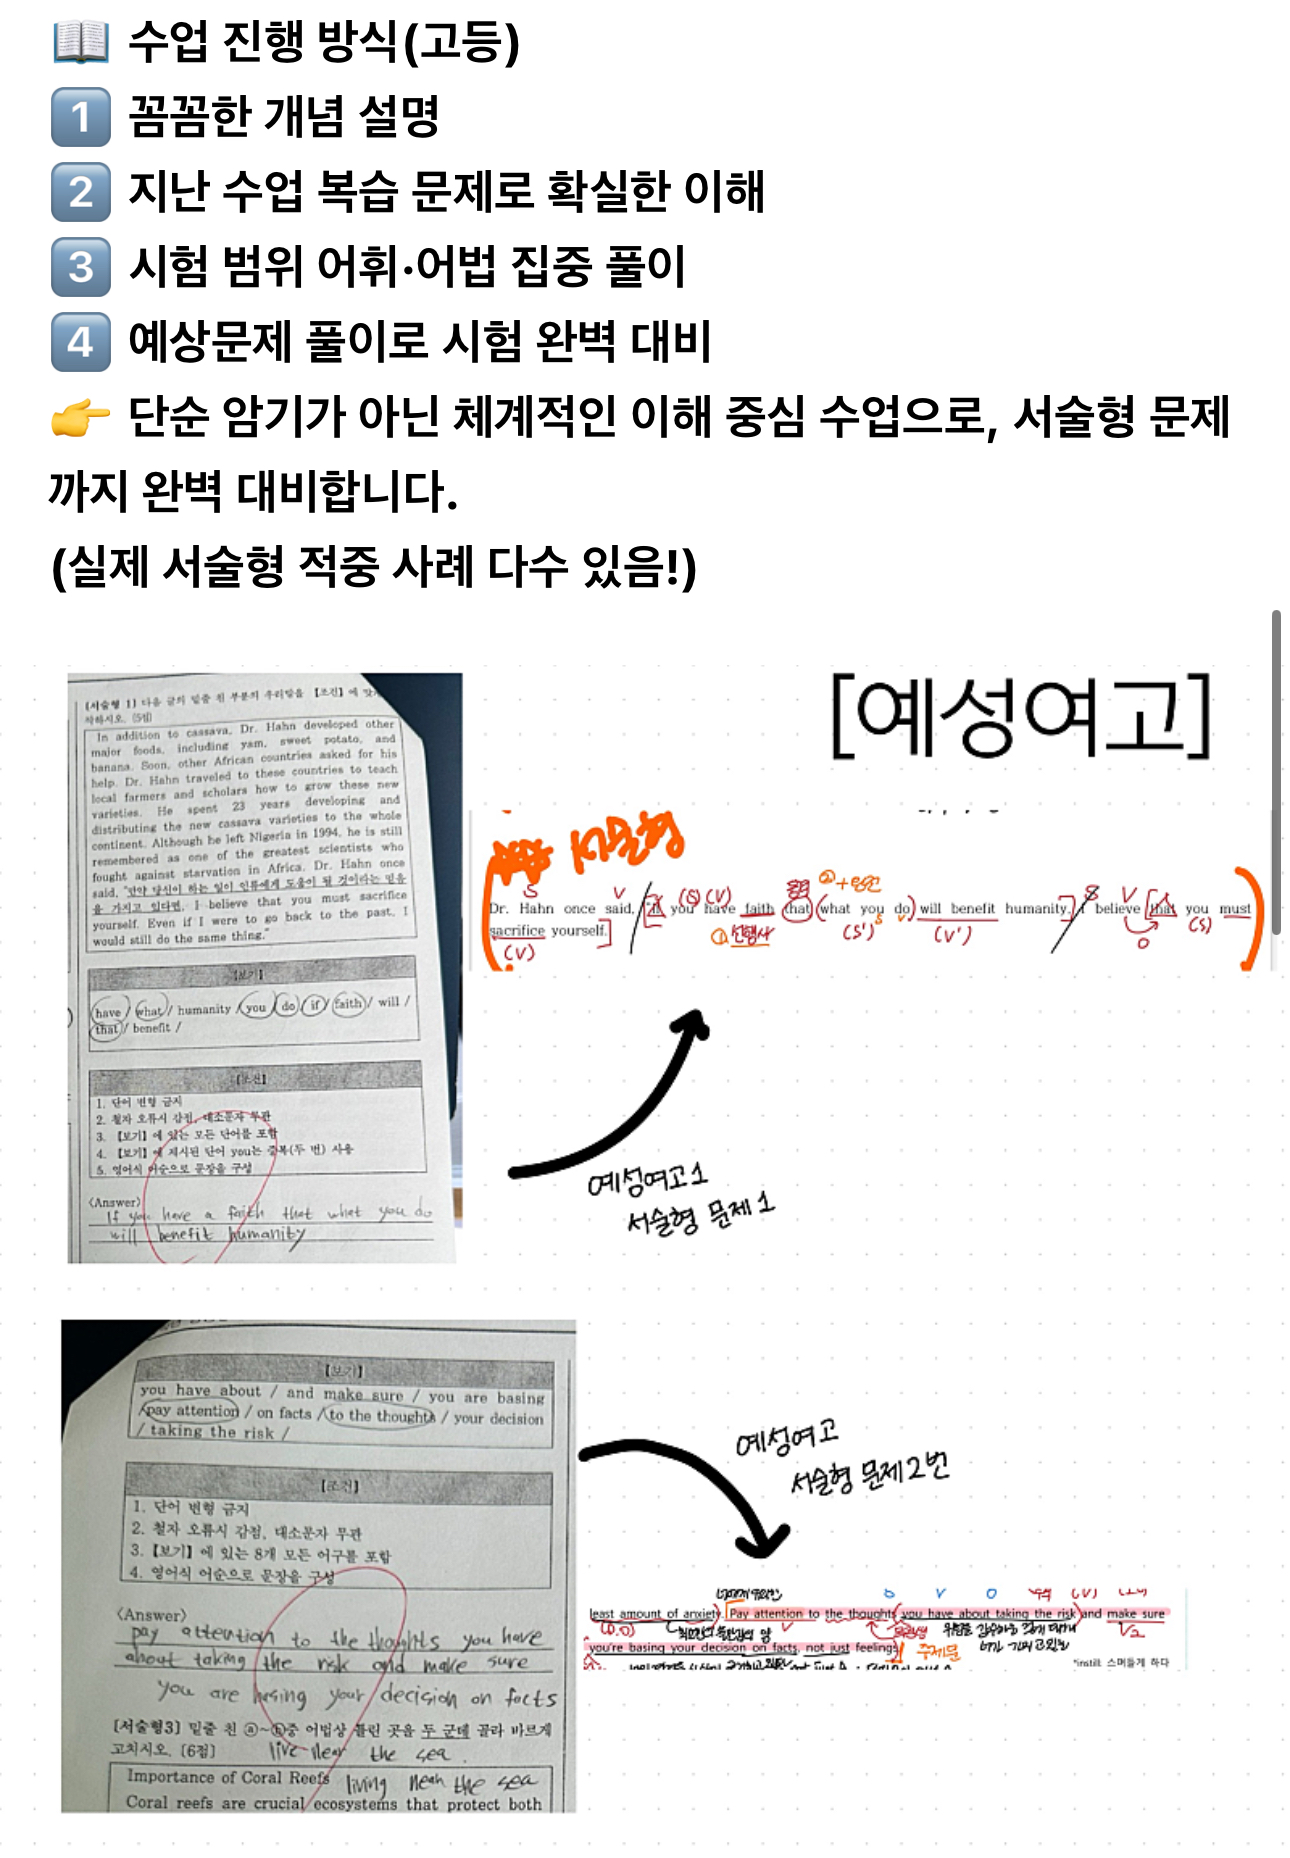 📖 수업 진행 방식(고등)
1 꼼꼼한 개념 설명
2 지난 수업 복습 문제로 확실한 이해
3 시험 범위 어휘·어법 집중 풀이
4 예상문제 풀이로 시험 완벽 대비
👉 단순 암기가 아닌 체계적인 이해 중심 수업으로, 서술형 문제
까지 완벽 대비합니다.
(실제 서술형 적중 사례 다수 있음!)
[예성여고]
[서술형 1] 다음 글의 밑줄 친 부분의 우리말을 【조건】에
작하시오. (5점)
In addition to cassava, Dr. Hahn developed other
major foods, including yam, sweet potato, and
banana. Soon, other African countries asked for his
help. Dr. Hahn traveled to these countries to teach
local farmers and scholars how to grow these new
varieties. He spent 23 years developing and
distributing the new cassava varieties to the whole
continent. Although he left Nigeria in 1994, he is still
remembered as one of the greatest scientists who
fought against starvation in Africa. Dr. Hahn once
said, "만약 당신이 하는 일이 인류에게 도움이 될 것이라는 믿음
을 가지고 있다면, I believe that you must sacrifice
yourself. Even if I were to go back to the past, I
would still do the same thing."
【보기】
have / what / humanity / you / do / if / faith / will /
that / benefit /
【조건】
1. 단어 변형 금지
2. 철자 오류시 감점, 대소문자 무관
3. 【보기】에 있는 모든 단어를 포함
4. 【보기】에 제시된 단어 you는 중복(두 번) 사용
5. 영어식 어순으로 문장을 구성
<Answer>
If you have a faith that what you do
will benefit humanity
서술형
S V (S) (V) ②+
Dr. Hahn once said, "If you have faith that what you do will benefit humanity, I believe that you must
sacrifice yourself.
(V) ①선행사 (S') S V (V') O (S)
예성여고1
서술형 문제 1
【보기】
you have about / and make sure / you are basing
/pay attention / on facts / to the thoughts / your decision
/ taking the risk /
【조건】
1. 단어 변형 금지
2. 철자 오류시 감점, 대소문자 무관
3. 【보기】에 있는 8개 모든 어구를 포함
4. 영어식 어순으로 문장을 구성
<Answer>
pay attention to the thoughts you have
about taking the risk and make sure
you are basing your decision on facts
[서술형3] 밑줄 친 ⓐ~ⓗ중 어법상 틀린 곳을 두 군데 골라 바르게
고치시오. [6점] live near the sea.
Importance of Coral Reefs living near the sea
Coral reefs are crucial ecosystems that protect both
예성여고
서술형 문제 2번
least amount of anxiety. Pay attention to the thoughts you have about taking the risk and make sure
최소한의 불안감의 양
you're basing your decision on facts, not just feelings.
주제문
*instill: 스며들게 하다